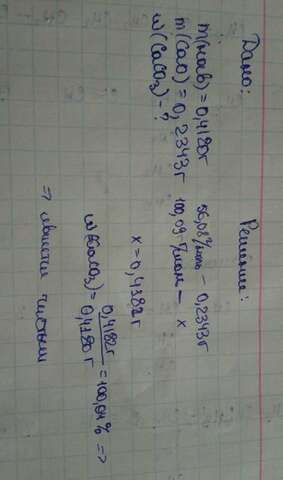 Дано:
m(нав) = 0,4180г
m(CaO) = 0,2343г
w(CaCO₃) - ?
Решение:
56,08 г/моль - 0,2343г
100,09 г/моль - x
x = 0,4182г
w(CaCO₃) = 0,4182г / 0,4180г = 100,04% =>
=> является чистым